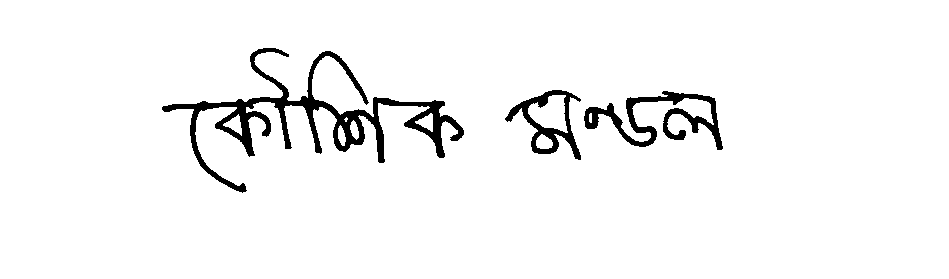 কৌশিক মণ্ডল